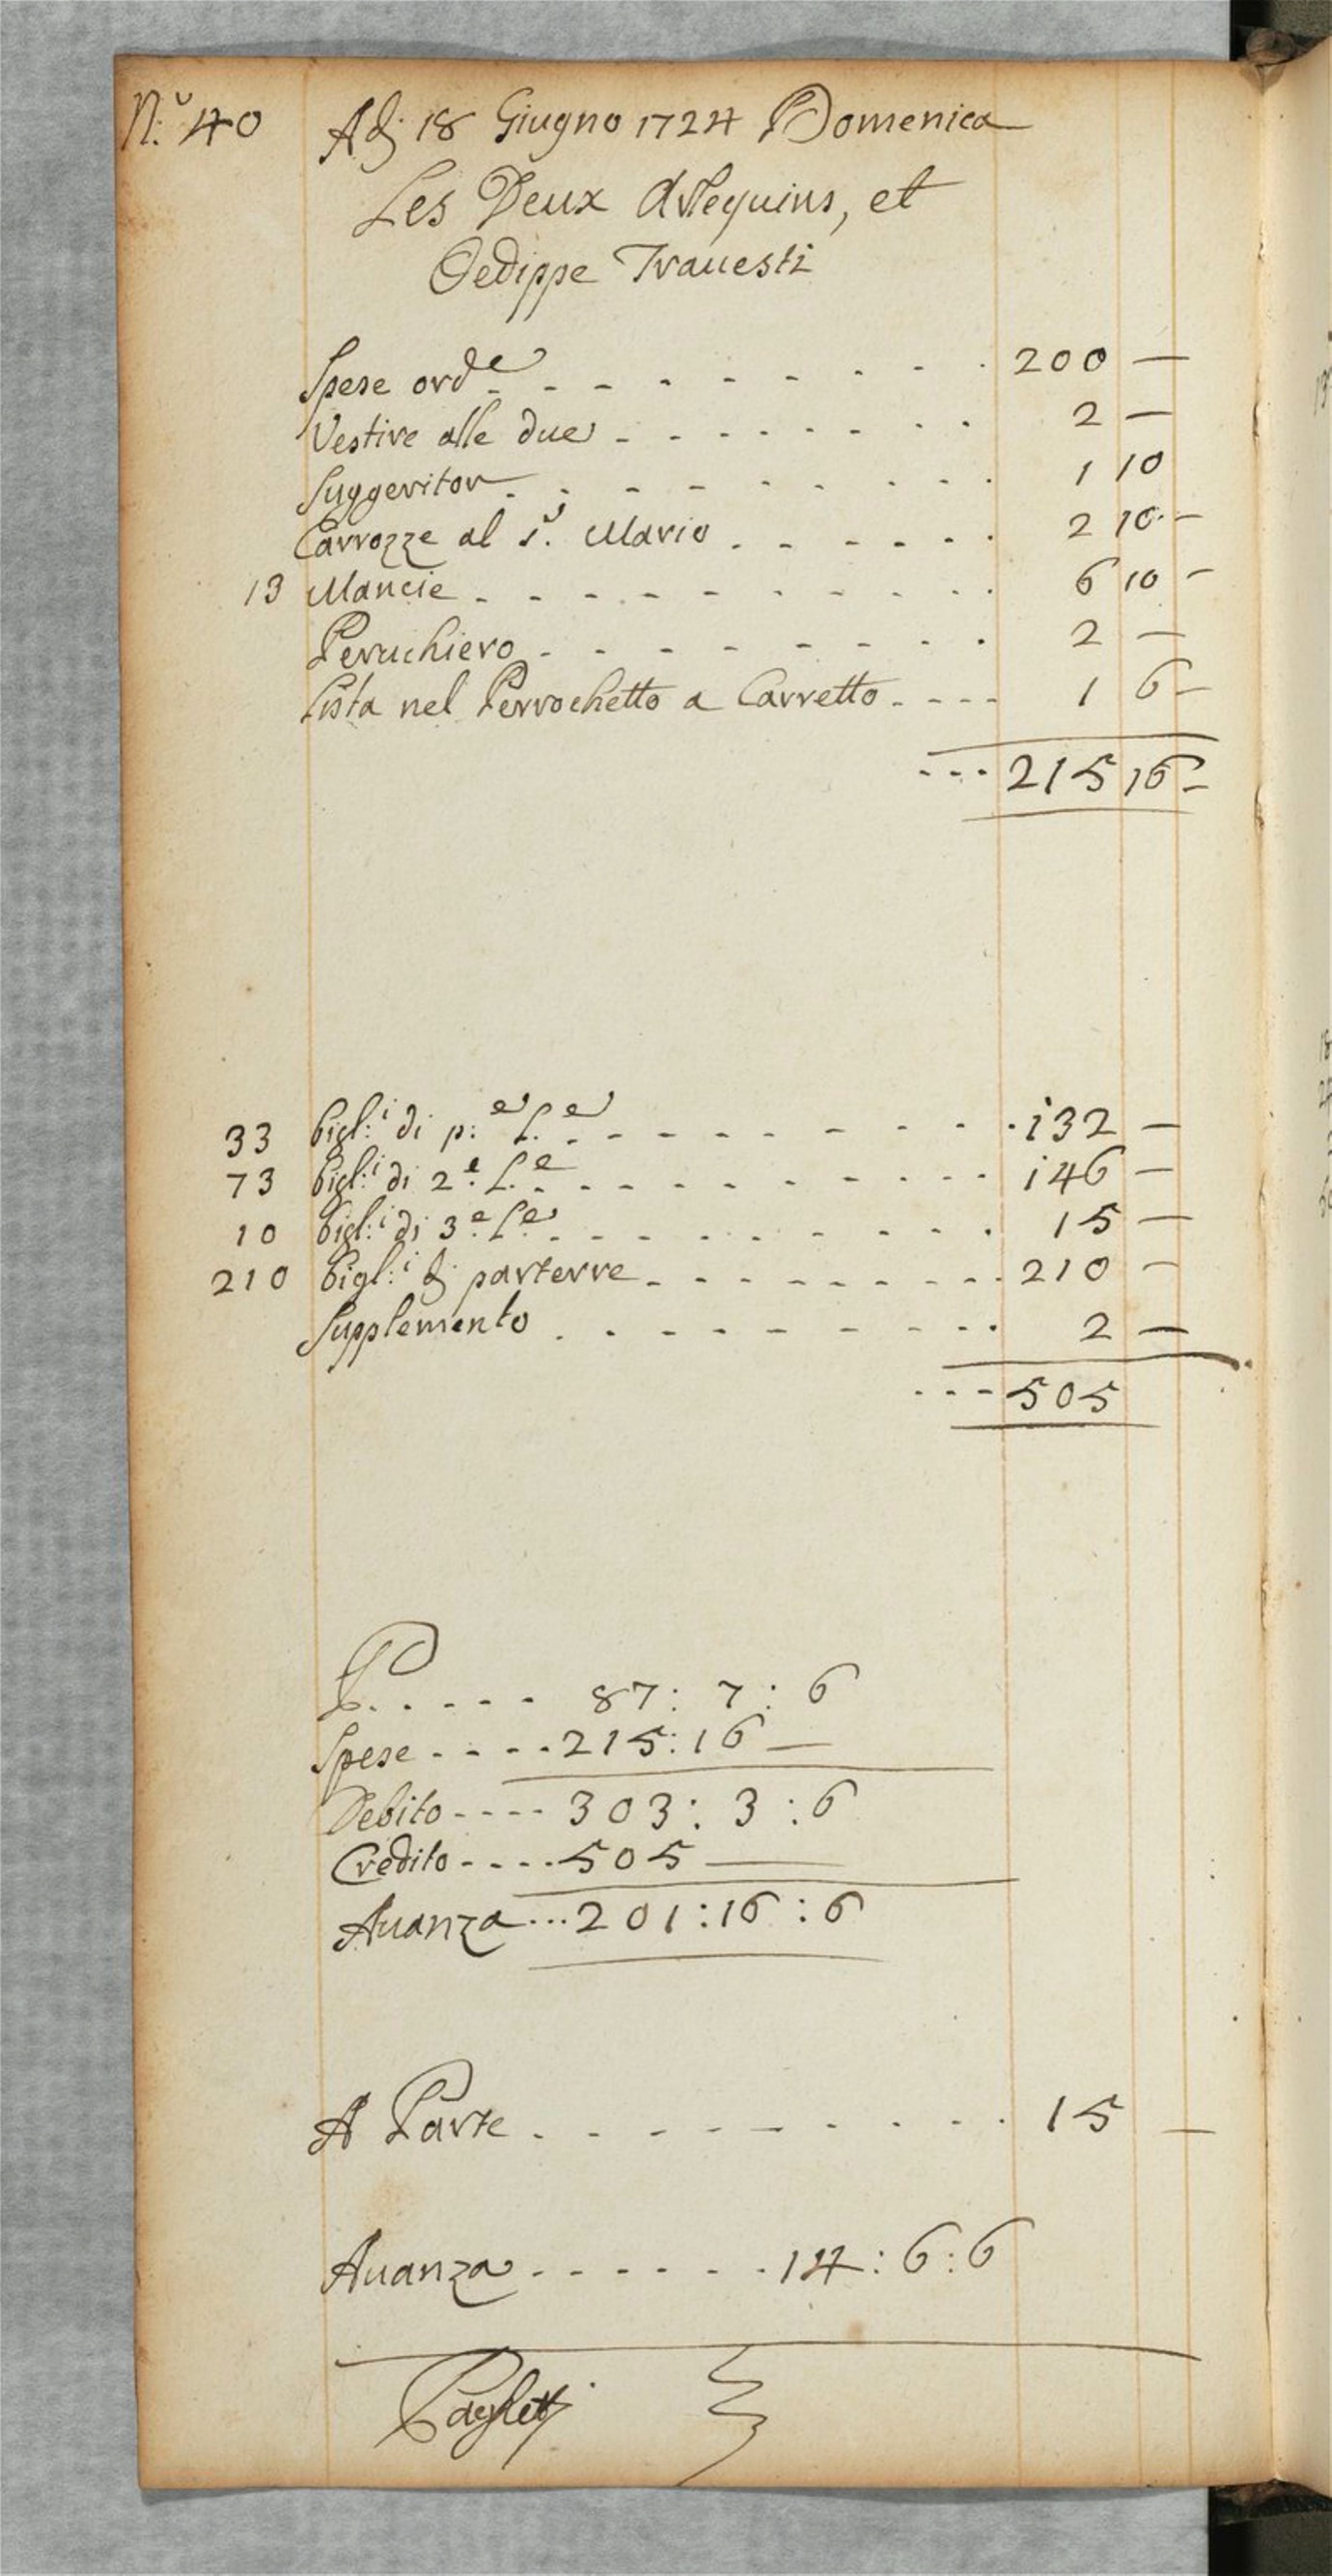 N.º 40 Adj 18 Giugno 1724 Domenica
Les Deux Arlequins, et
Oedippe Travesti
Spese ord.e 200 —
Vestire alle due 2 —
Suggeritor 1 10
Carrozze al S.r Mario 2 10 —
13 Mancie 6 10 —
Peruchiero 2 —
Pista nel Perrochetto a Carretto 1 6 —
215 16 —
33 bigl:i di p:e L.e 132 —
73 bigl:i di 2.e L.e 146 —
10 bigl:i di 3.e L.e 15 —
210 bigl:i di parterre 210 —
Supplemento 2 —
505
P. 87 : 7 : 6
Spese 215 : 16 —
Debito 303 : 3 : 6
Credito 505 —
Auanza 201 : 16 : 6
A Parte 15 —
Auanza 14 : 6 : 6